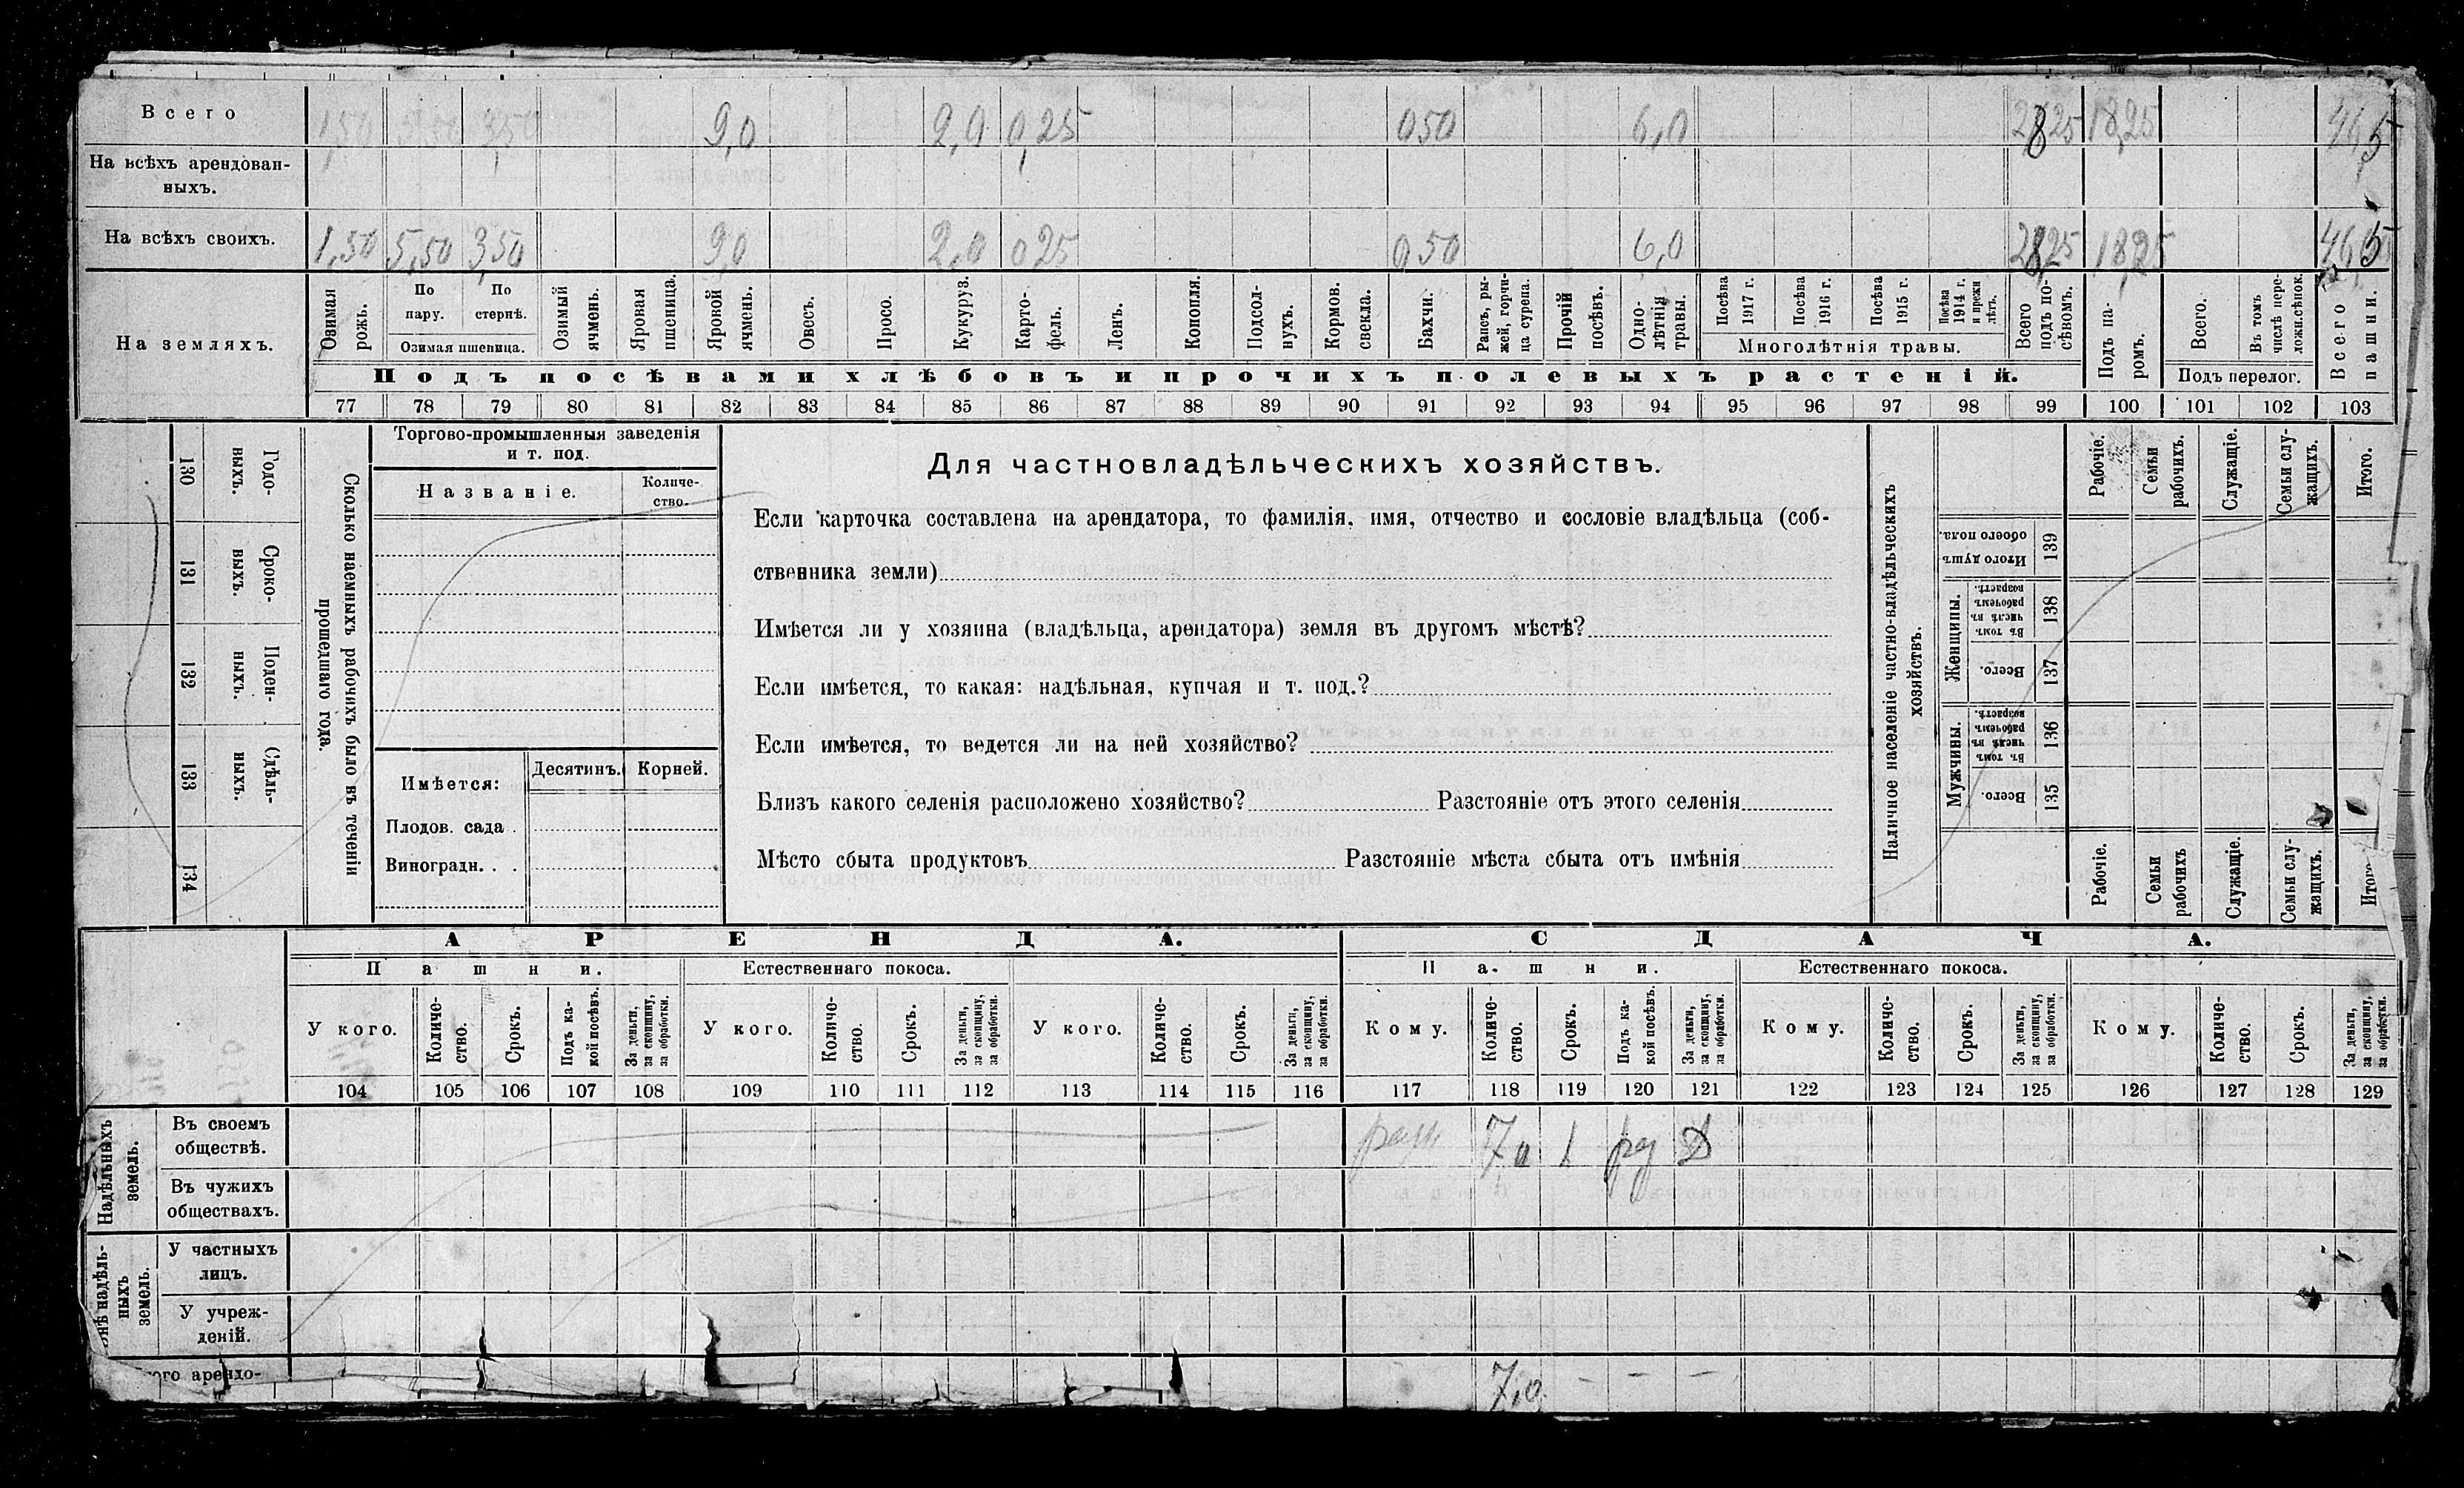 Всего 1,50 5,50 3,50 9,0 2,0 0,25 050 6,0 2825 18,25 46,5
На всѣхъ арендован-
ныхъ.
На всѣхъ своихъ. 1,50 5,50 3,50 9,0 2,0 025 050 6,0 2825 18,25 46,5
На земляхъ.
Озимая рожь.
По пару.
По стернѣ.
Озимая пшеница.
Озимый ячмень.
Яровая пшеница.
Яровой ячмень.
Овесъ.
Просо.
Кукуруз.
Карто-
фель.
Ленъ.
Конопля.
Подсол-
нухъ.
Кормов. свекла.
Бахчи.
Рапсъ, ры-
жей, горчи-
ца сурепа.
Прочій посѣвъ.
Одно-
лѣтнія травы.
Посѣва 1917 г.
Посѣва 1916 г.
Посѣва 1915 г.
Посѣва 1914 г. и прежн лѣтъ.
Многолѣтнія травы.
Всего подъ по-
сѣвомъ.
Подъ па-
ромъ.
Всего.
Въ томъ числѣ пере-
ложн.сѣнок.
Подъ перелог.
Всего пашни.
Подъ посѣвами хлѣбовъ и прочихъ полевыхъ растеній.
77 78 79 80 81 82 83 84 85 86 87 88 89 90 91 92 93 94 95 96 97 98 99 100 101 102 103
130 Годо-
выхъ.
131 Сроко-
выхъ.
132 Поден-
ныхъ.
133 Сдѣль-
ныхъ.
134
Сколько наемныхъ рабочихъ было въ теченіи
прошедшаго года.
Торгово-промышленныя заведенія
и т. под.
Названіе.
Количе-
ство.
Имѣется: Десятинъ. Корней.
Плодов. сада .
Виноградн. . .
Для частновладѣльческихъ хозяйствъ.
Если карточка составлена на арендатора, то фамилія, имя, отчество и сословіе владѣльца (соб-
ственника земли)
Имѣется ли у хозяина (владѣльца, арендатора) земля въ другомъ мѣстѣ?
Если имѣется, то какая: надѣльная, купчая и т. под.?
Если имѣется, то ведется ли на ней хозяйство?
Близъ какого селенія расположено хозяйство? Разстояніе отъ этого селенія
Мѣсто сбыта продуктовъ Разстояніе мѣста сбыта отъ имѣнія
Наличное населеніе частно-владѣльческихъ
хозяйствъ.
Рабочіе.
Семьи рабочихъ.
Служащіе.
Семьи слу-
жащихъ.
Итого.
Итого душъ обоего пола. 139
Женщины.
Въ томъ числѣ въ рабочемъ возрастѣ. 138
Всего. 137
Мужчины.
Въ томъ числѣ въ рабочемъ возрастѣ. 136
Всего. 135
Рабочіе.
Семьи рабочихъ
Служащіе.
Семьи слу-
жащихъ.
АРЕНДА. СДАЧА.
Пашни. Естественнаго покоса. Пашни. Естественнаго покоса.
У кого.
Количе-
ство.
Срокъ.
Подъ ка-
кой посѣвъ.
За деньги, за скопщину, за обработки.
У кого.
Количе-
ство.
Срокъ.
За деньги, за скопщину, за обработки.
У кого.
Количе-
ство.
Срокъ.
За деньги, за скопщину, за обработки.
Кому.
Количе-
ство.
Срокъ.
Подъ ка-
кой посѣвъ.
За деньги, за скопщину, за обработки.
Кому.
Количе-
ство.
Срокъ.
За деньги, за скопщину, за обработки.
Кому.
Количе-
ство.
Срокъ.
За деньги, за скопщину, за обработки.
104 105 106 107 108 109 110 111 112 113 114 115 116 117 118 119 120 121 122 123 124 125 126 127 128 129
Надѣльныхъ земель.
Въ своемъ
обществѣ. 1
Въ чужихъ
обществахъ.
надѣль-
ныхъ
земель.
У частныхъ
лицъ.
У учреж-
деній.
арендо- 7,0 - - -